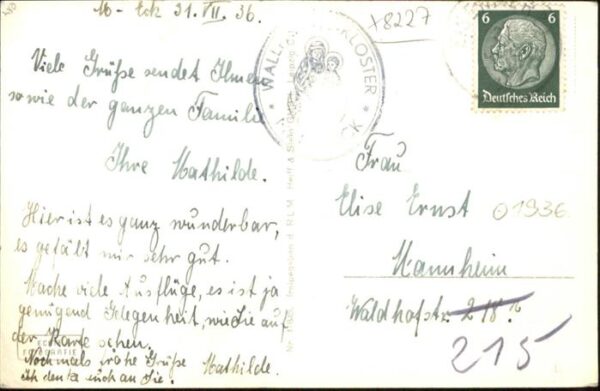 M-Eck 31. VII. 36.
Viele Grüße sendet Ihnen
sowie der ganzen Familie
Ihre Mathilde.
Hier ist es ganz wunderbar,
es gefällt mir sehr gut.
Mache viele Ausflüge, es ist ja
genügend Gelegenheit, wie Sie auf
der Karte sehen.
Nochmals frohe Grüße Mathilde.
ich denke auch an Sie!
WALL KLOSTER
+8227
6 6
Deutsches Reich
Frau
Elise Ernst
01936
Mannheim
Waldhofstr. 218.
215